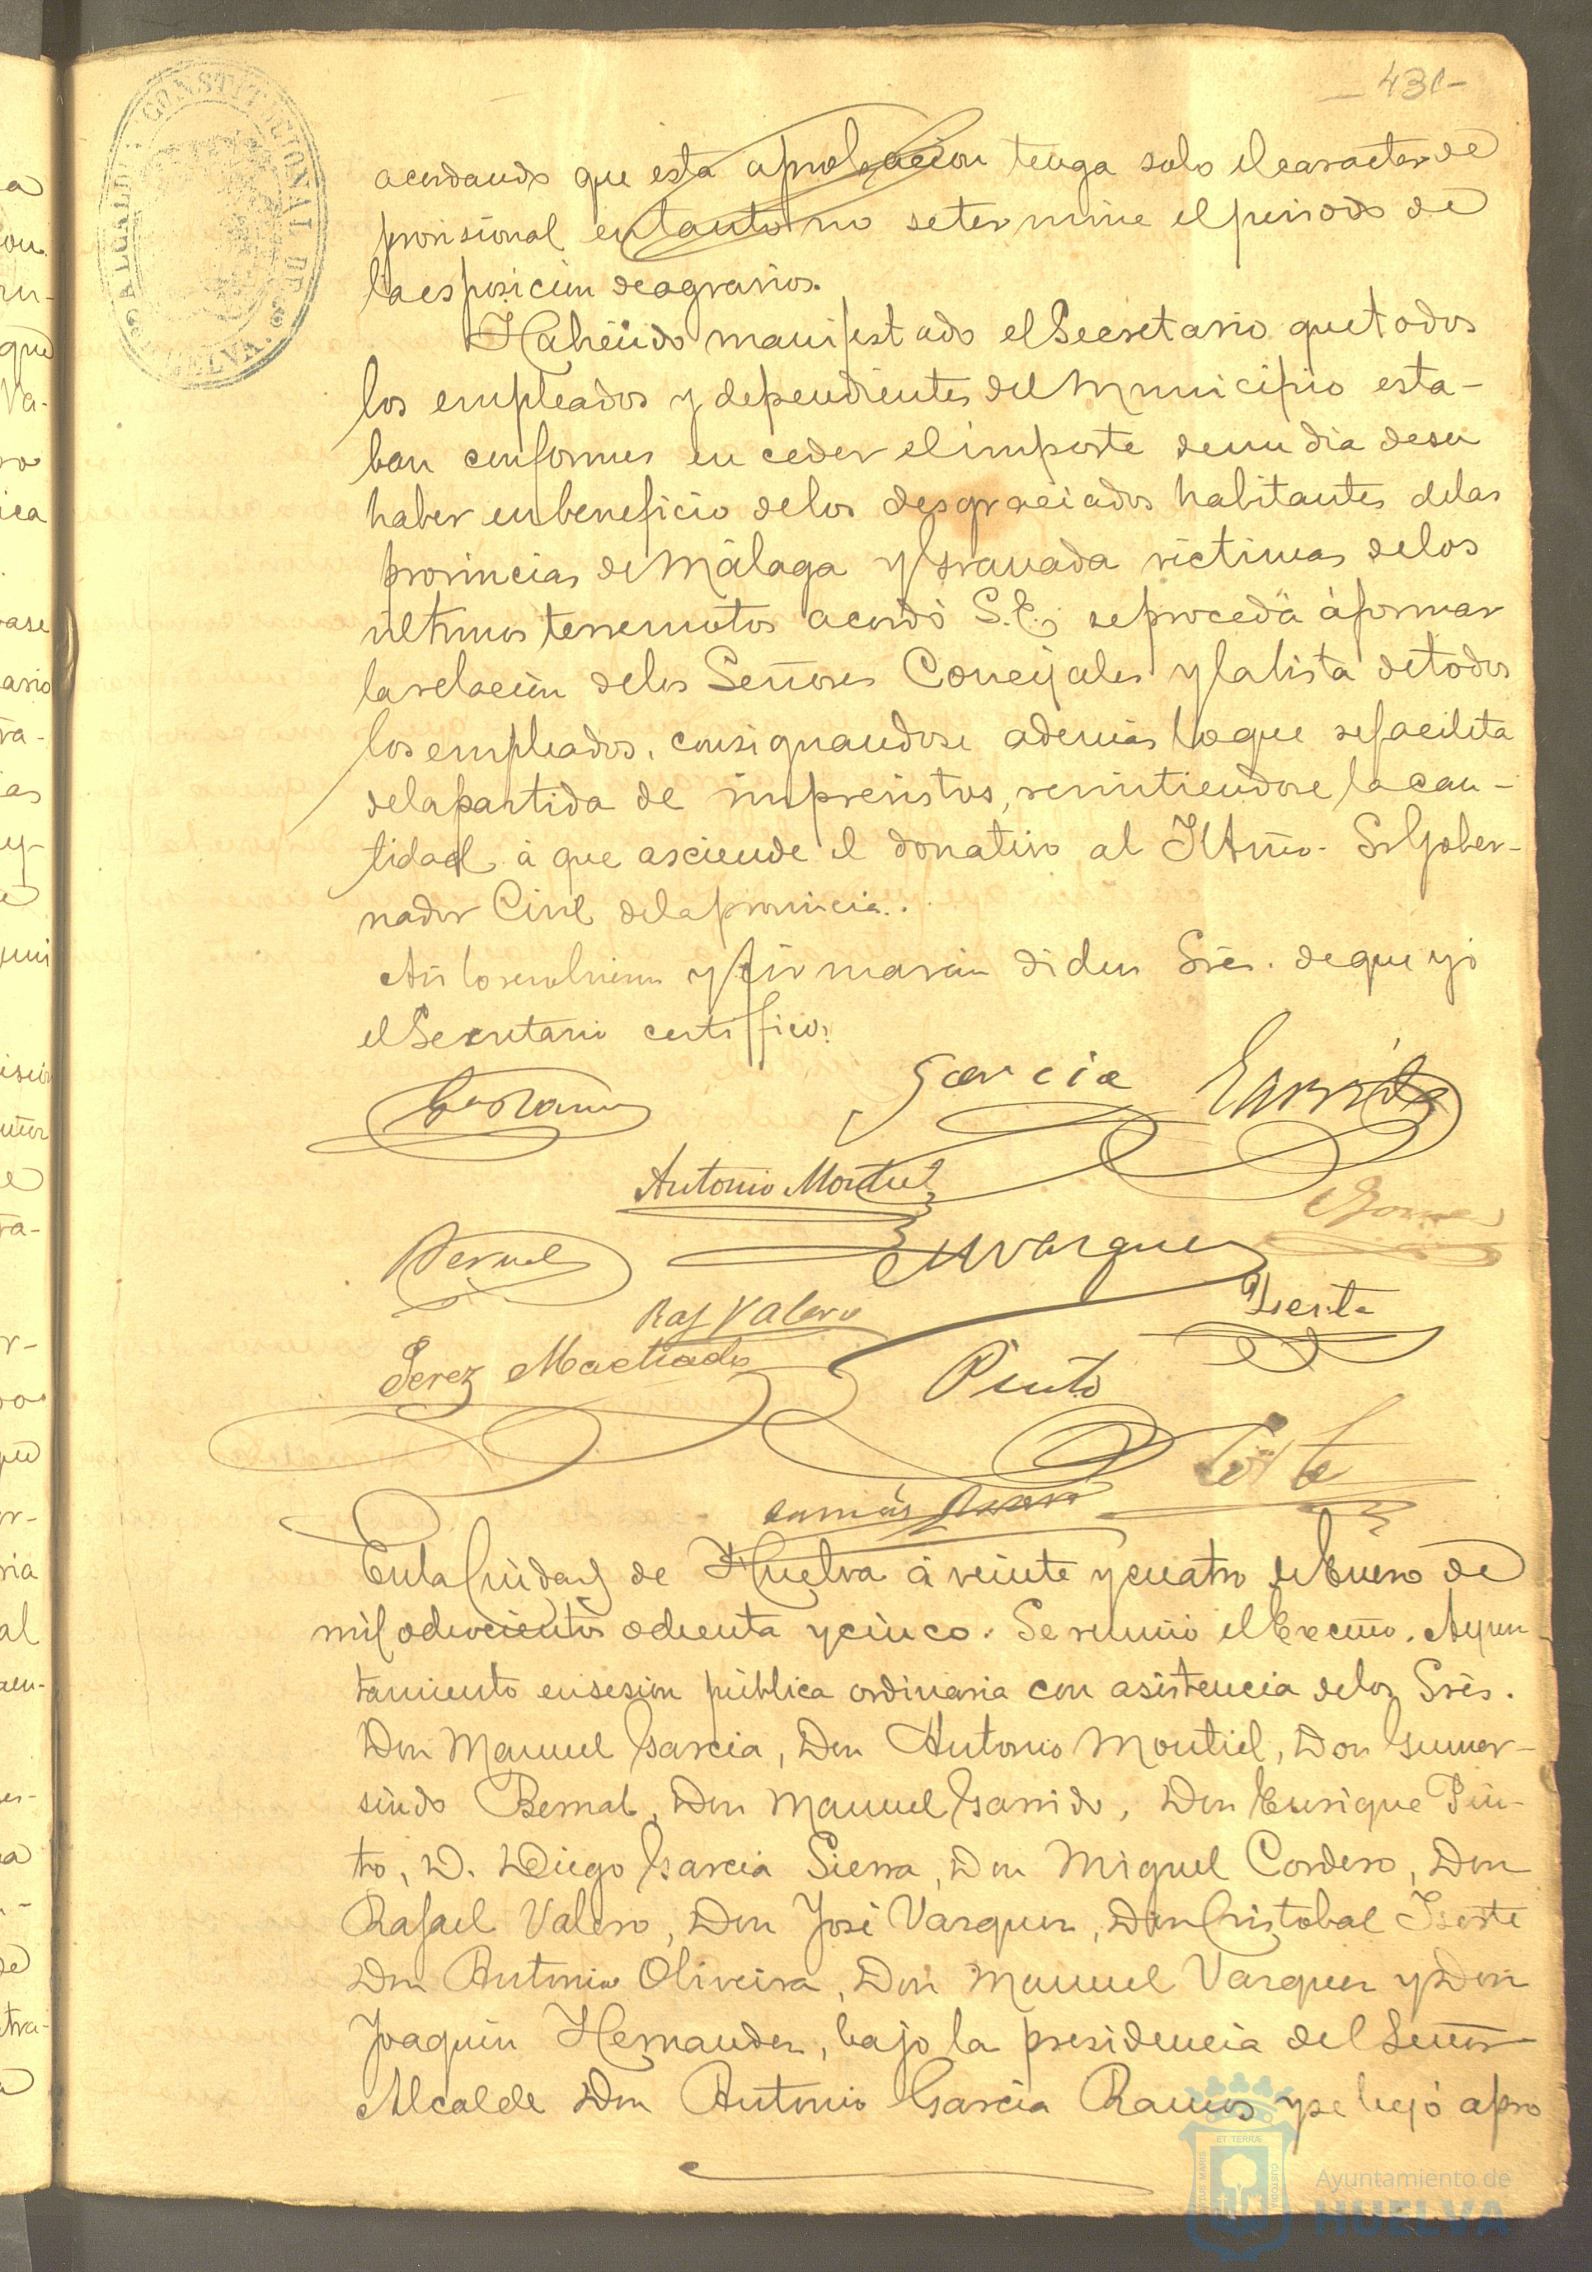 431-
ALCALDIA CONSTITUCIONAL DE HUELVA.
acordando que esta aprobacion tenga solo el caracter de
provisional en tanto no se termine el periodo de
la esposicion de agravios.
Habiendo manifestado el Secretario que todos
los empleados y dependientes del Municipio esta-
ban conformes en ceder el importe de un dia de su
haber en beneficio de los desgraciados habitantes de las
provincias de Málaga y Granada victimas de los
ultimos terremotos acordó S.E. se proceda á formar
la relacion de los Señores Concejales y la lista de todos
los empleados, consignandose ademas lo que se facilita
de la partida de imprevistos, remitiendose la can-
tidad á que asciende el donativo al Iltmo. Sr Gober-
nador Civil de la provincia.
Asi lo resolvieron y firmarán dichos Sres. de que yo
el Secretario certifico.
Garcia Garrido
Antonio Montiel
Bernal M Vazquez Gomez
Raf Valero Iserte
Perez Machado
Pinto
En la Ciudad de Huelva á veinte y cuatro de Enero de
mil ochocientos ochenta y cinco. Se reunió el Excmo. Ayun-
tamiento en sesion pública ordinaria con asistencia de los Sres.
Don Manuel Garcia, Don Antonio Montiel, Don Gumer-
sindo Bernal, Don Manuel Garrido, Don Enrique Pin-
to, D. Diego Garcia Sierra, Don Miguel Cordero, Don
Rafael Valero, Don José Vazquez, Don Cristobal Iserte
Don Antonio Oliveira, Don Manuel Vazquez y Don
Joaquin Hernandez, bajo la presidencia del Señor
Alcalde Don Antonio Garcia Ramos y se leyó apro
Ayuntamiento de
HUELVA